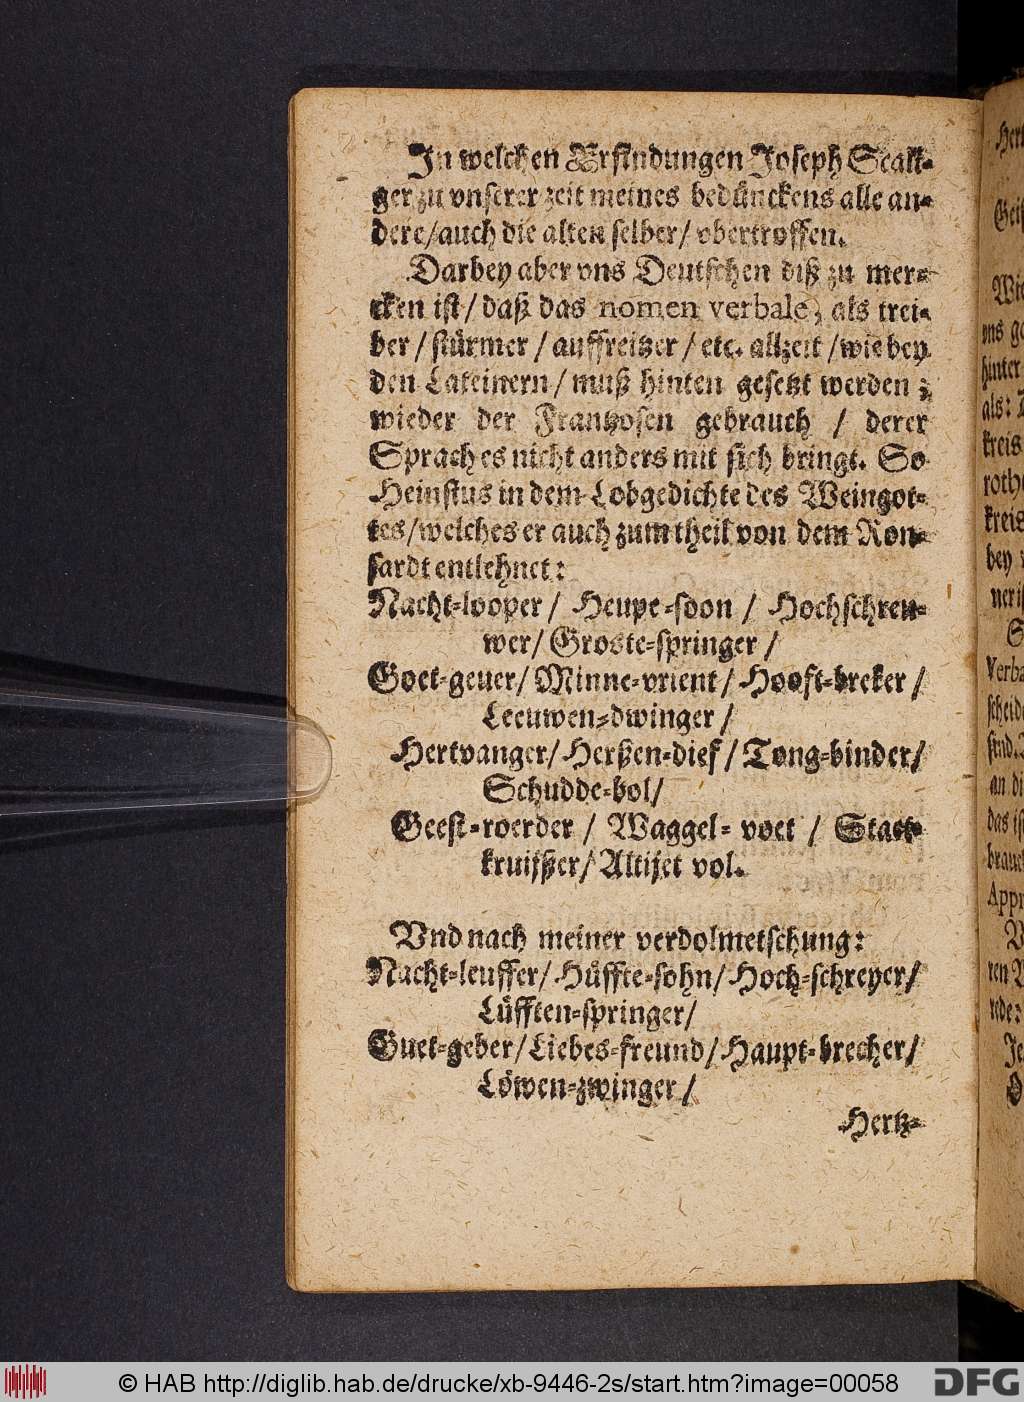 In welchen Erfindungen Joseph Scali-
ger zu vnserer zeit meines bedünckens alle an-
dere/auch die alten selber/ vbertroffen.
Darbey aber vns Deutschen diß zu mer-
cken ist/ daß das nomen verbale, als trei-
ber / stürmer / auffreitzer / etc. allzeit /wie bey
den Lateinern / muß hinten gesetzt werden ;
wieder der Frantzosen gebrauch / derer
Sprach es nicht anders mit sich bringt. So
Heinsius in dem Lobgedichte des Weingot-
tes/welches er auch zum theil von dem Ron-
sardt entlehnet:
Nacht-looper / Heupe-soon / Hochschreu-
wer/ Groote-springer /
Goet-geuer/ Minne-vrient/ Hooft-breker /
Leeuwen-dwinger /
Hertvanger/ Herßen-dief/ Tong-binder/
Schudde-bol/
Geest-roerder / Waggel-voet / Staet-
kruijßer/ Altijet vol.
Vnd nach meiner verdolmetschung:
Nacht-leuffer/ Hüffte-sohn/ Hoch-schreyer/
Lüfften-springer/
Guet-geber/ Liebes-freund/ Haupt-brecher/
Löwen-zwinger /
Hertz-
© HAB http://diglib.hab.de/drucke/xb-9446-2s/start.htm?image=00058
DFG